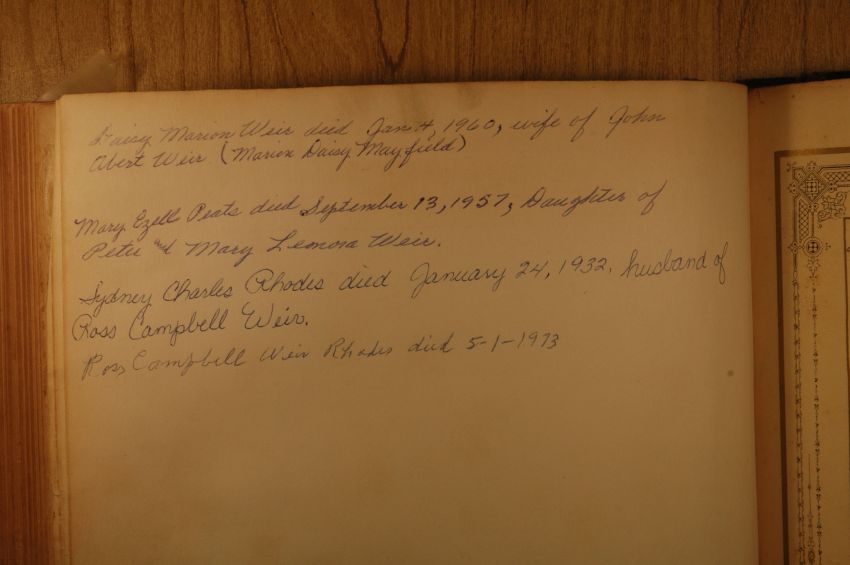 Daisy Marion Weir died Jan 4, 1960, wife of John
Abert Weir (Marion Daisy Mayfield)
Mary Ezell Peats died September 13, 1957, Daughter of
Peter and Mary Lenora Weir.
Sydney Charles Rhodes died January 24, 1932, husband of
Ross Campbell Weir.
Ross Campbell Weir Rhodes died 5-1-1973